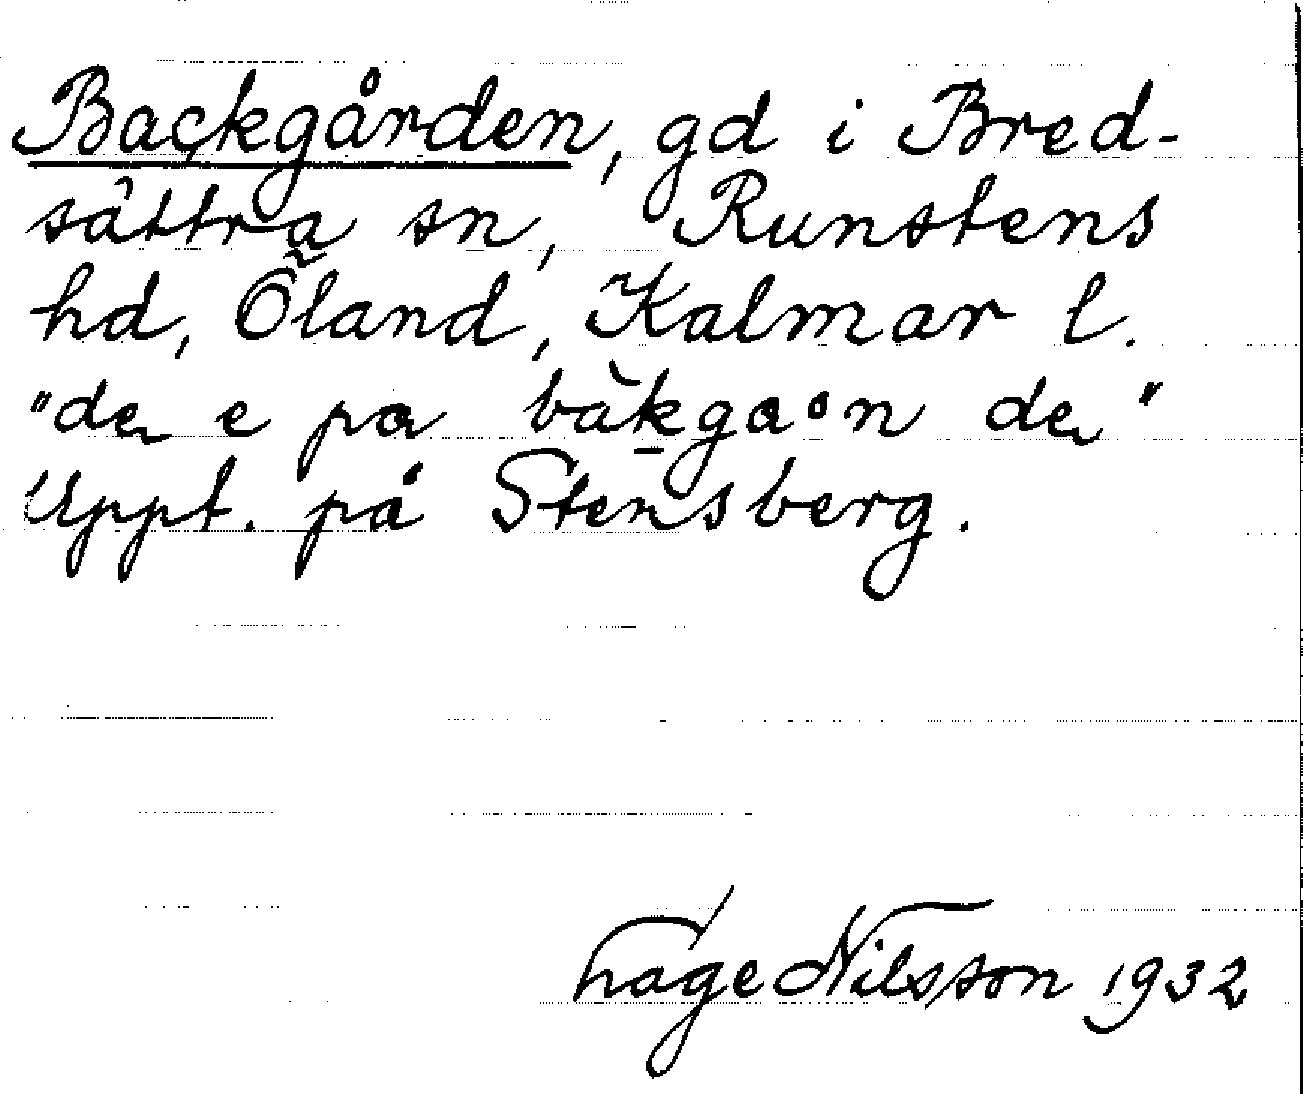 Backgården, gd i Bred-
sättra sn, Runstens
hd, Öland, Kalmar l.
"de e pa bàkgaon de"
Uppt. på Stensberg.
Tage Nilsson 1932